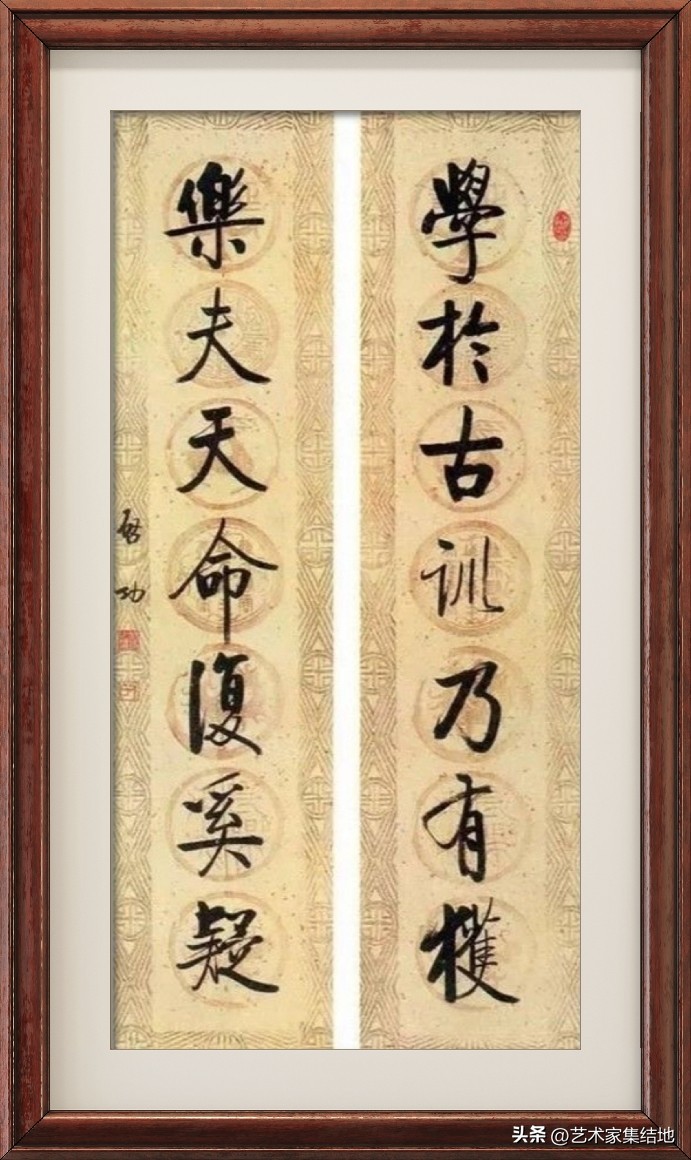 學於古訓乃有獲
樂夫天命復奚疑
啓功
头条 @艺术家集结地